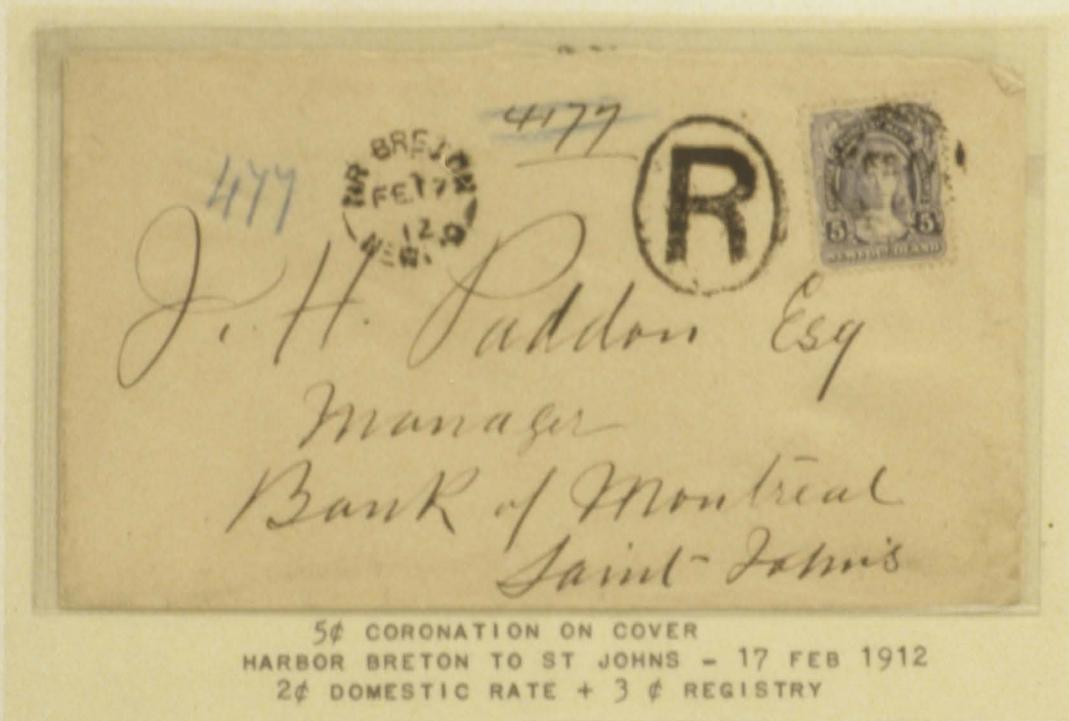 4177
477
HR BRETON
FE 17
12
NEWF'D
R
5 5
NEWFOUNDLAND
J. H. Paddon Esq
Manager
Bank of Montreal
Saint John's
5¢ CORONATION ON COVER
HARBOR BRETON TO ST JOHNS - 17 FEB 1912
2¢ DOMESTIC RATE + 3 ¢ REGISTRY